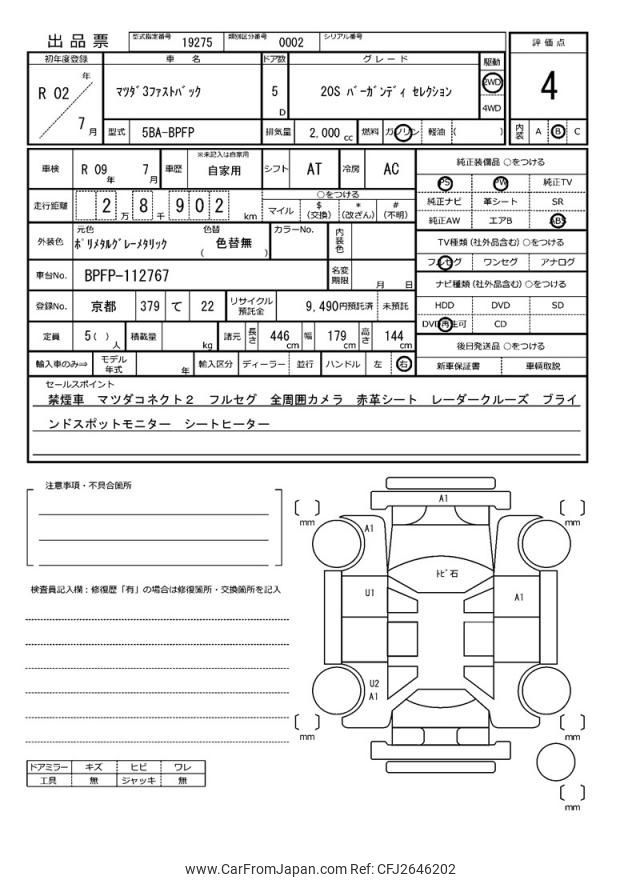 出品票 型式指定番号 19275 類別区分番号 0002 シリアル番号
評価点
4
内装 A B C
初年度登録 車名 ドア数 グレード 駆動
R 02 年 7 月 マツダ3ファストバック 5 D 20S バーガンディ セレクション 2WD 4WD
型式 5BA-BPFP 排気量 2,000 cc 燃料 ガソリン 軽油 ( )
車検 R 09 年 7 月 車歴 ※未記入は自家用 自家用 シフト AT 冷房 AC
走行距離 2 万 8 千 9 0 2 km ○をつける マイル $ (交換) * (改ざん) # (不明)
外装色 元色 ポリメタルグレーメタリック 色替 ( 色替無 ) カラーNo. 内装色
車台No. BPFP-112767 名変期限 月 日
登録No. 京都 379 て 22 リサイクル預託金 9,490円預託済 未預託
定員 5( ) 人 積載量 kg 諸元 長さ 446 cm 幅 179 cm 高さ 144 cm
輸入車のみ⇒ モデル年式 年 輸入区分 ディーラー 並行 ハンドル 左 右
純正装備品 ○をつける
PS PW 純正TV
純正ナビ 革シート SR
純正AW エアB ABS
TV種類 (社外品含む) ○をつける
フルセグ ワンセグ アナログ
ナビ種類 (社外品含む) ○をつける
HDD DVD SD
DVD再生可 CD
後日発送品 ○をつける
新車保証書 車輌取説
セールスポイント
禁煙車 マツダコネクト2 フルセグ 全周囲カメラ 赤革シート レーダークルーズ ブライ
ンドスポットモニター シートヒーター
注意事項・不具合箇所
検査員記入欄：修復歴「有」の場合は修復箇所・交換箇所を記入
ドアミラー キズ ヒビ ワレ
工具 無 ジャッキ 無
A1
mm mm
A1
トビ石
U1 A1
U2
A1
mm mm
mm
www.CarFromJapan.com Ref: CFJ2646202